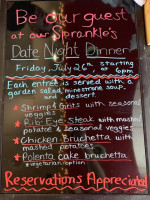 Be our guest
at our Sprankle's
Date Night Dinner
Friday, July 26th, starting
at 6pm
Each entree is served with a
garden salad, minestrone soup,
dessert.
Shrimp & Grits with seasonal
veggies
Rib Eye Steak with mashed
potatoes & seasonal veggies
Chicken Bruchetta with
mashed potatoes
Polenta cake bruchetta
vegetarian option
Reservations Appreciated